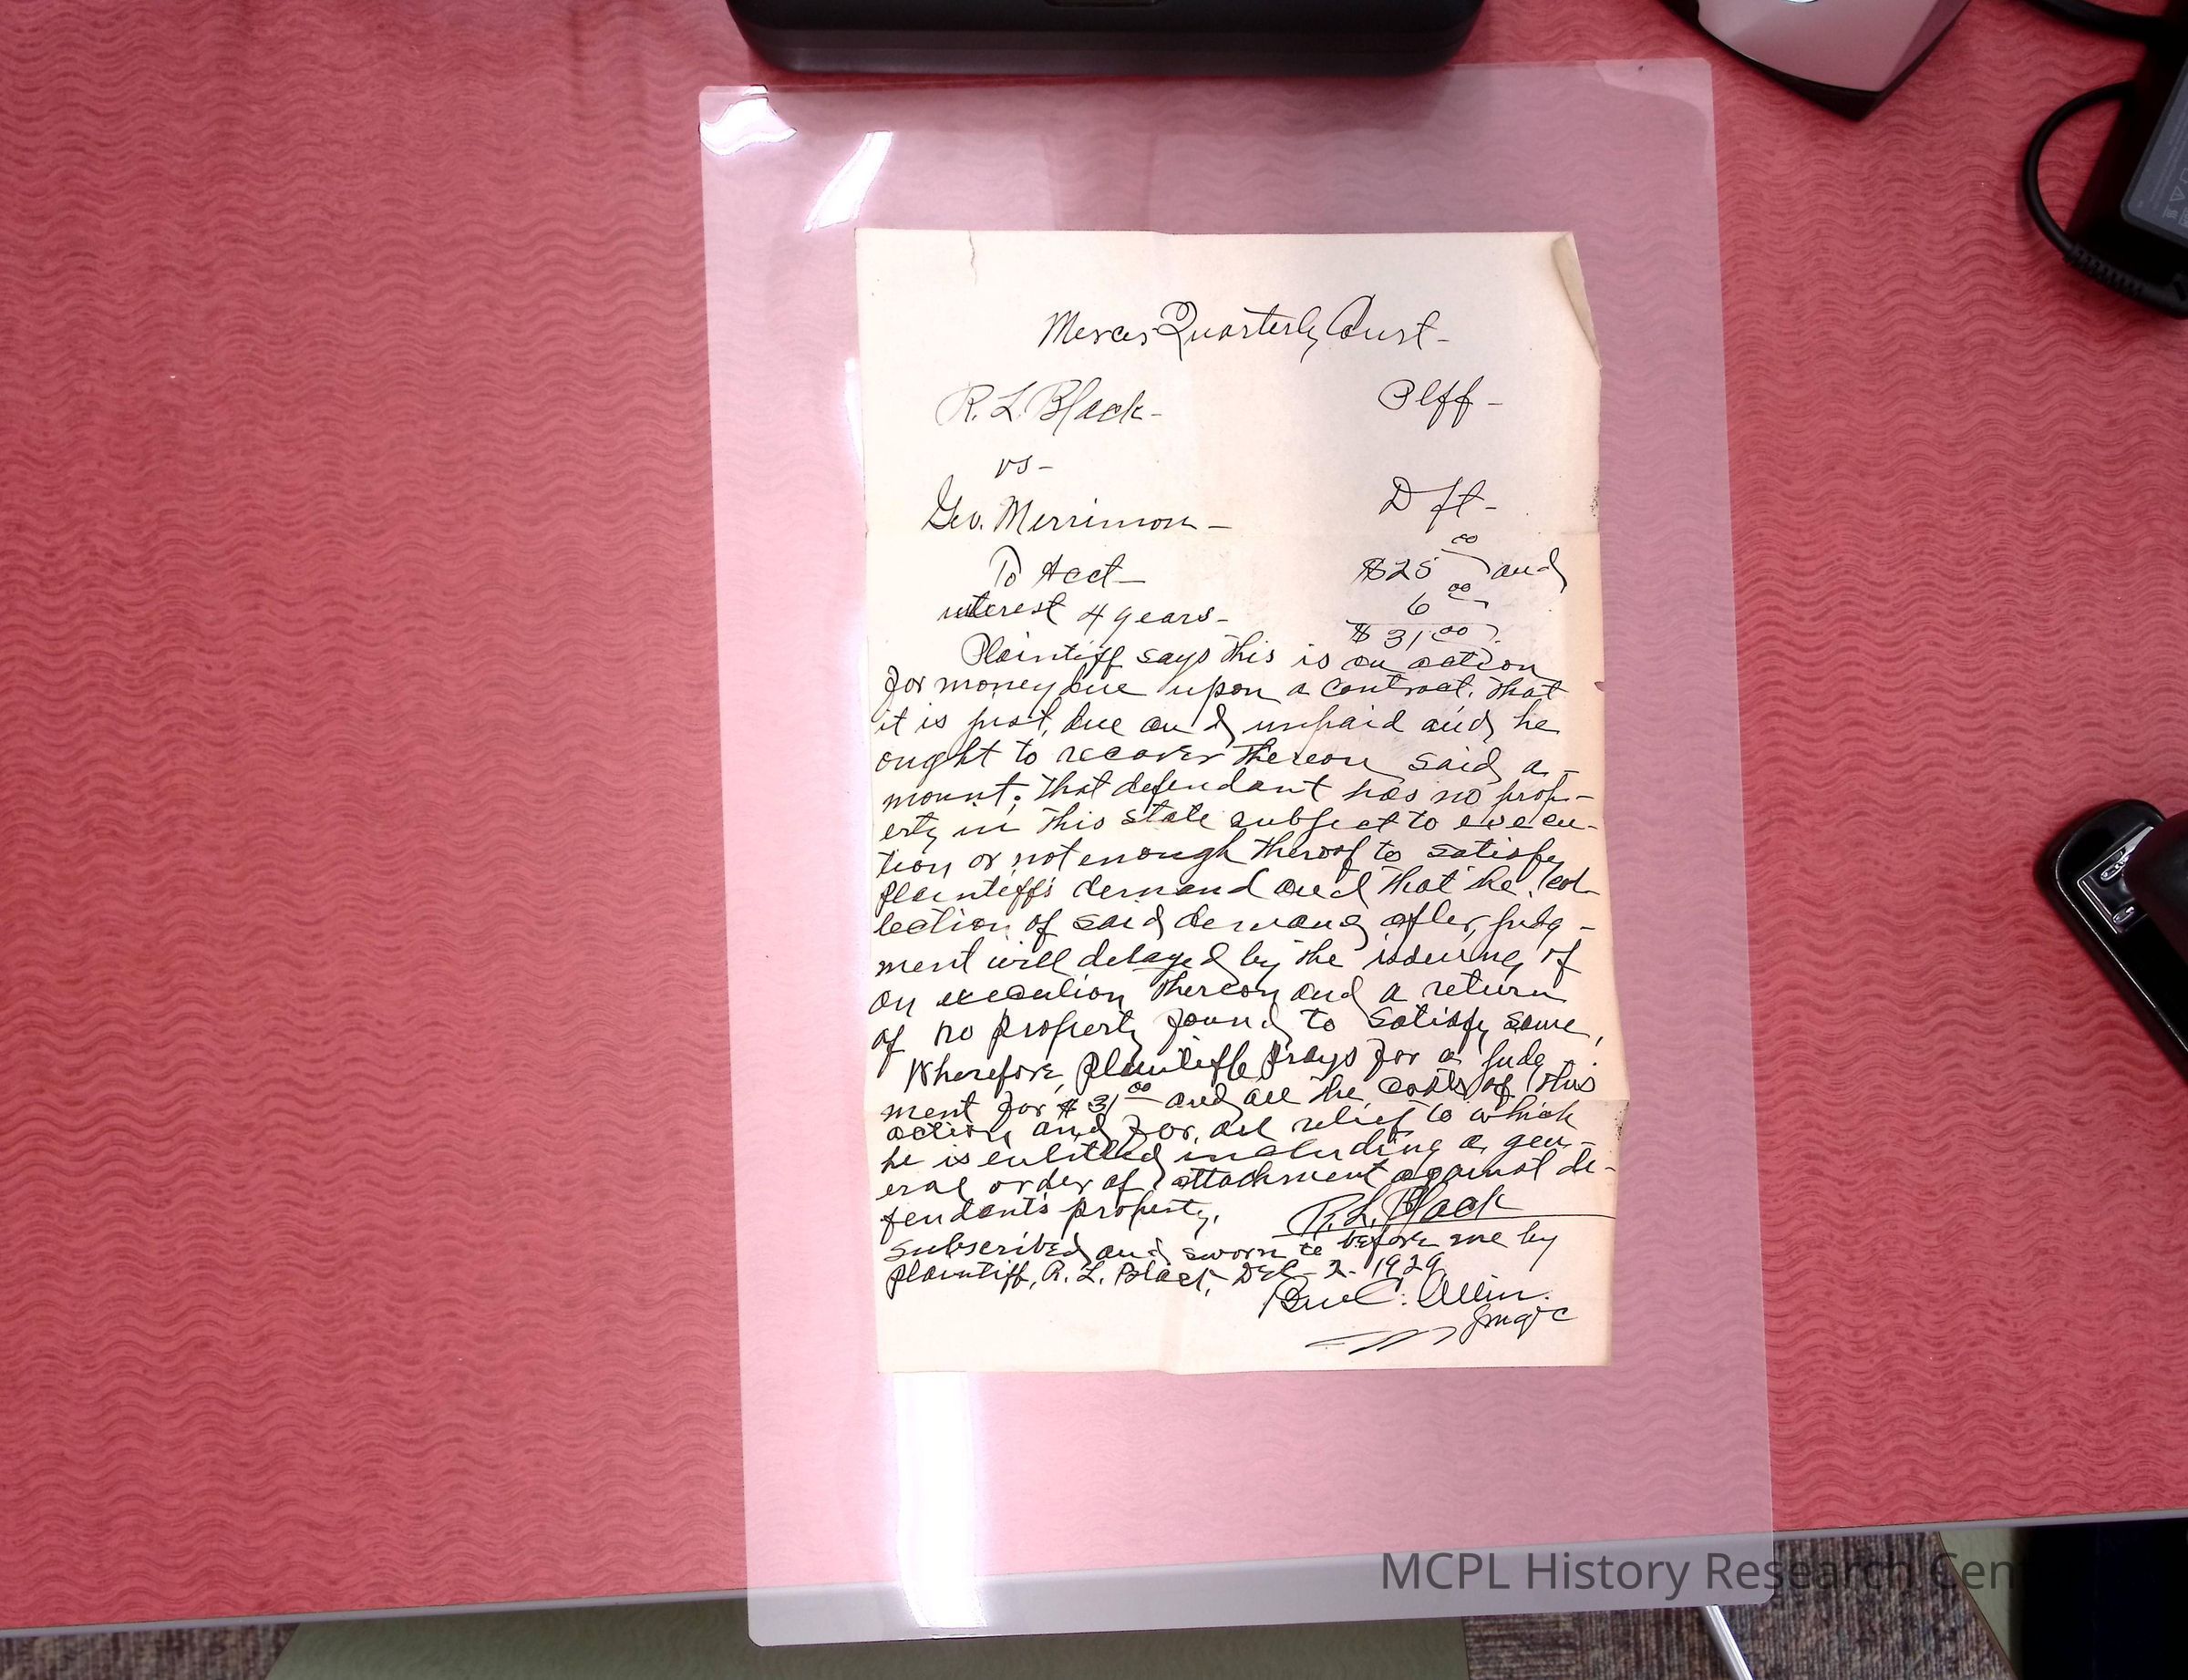 Mercer Quarterly Court -
R. L. Black - Plff -
vs -
Geo. Merrimon - Dft -
To Acct - $25 00 and
interest 4 years - 6 00
$31 00
Plaintiff says this is an action
for money due upon a contract. That
it is just, due and unpaid and he
ought to recover thereon said a-
mount. That defendant has no prop-
erty in this state subject to execu-
tion or not enough thereof to satisfy
plaintiffs demand and that the col-
lection of said demand after judg-
ment will delayed by the issuing of
an execution thereon and a return
of no property found to satisfy same.
Wherefore, plaintiff prays for a judg-
ment for $31 00 and all the costs of this
action and for all relief to which
he is entitled including a gen-
eral order of attachment against de-
fendants property.
R. L. Black
Subscribed and sworn to before me by
plaintiff, R. L. Black, Dec - 2 - 1929
C. Allin.
MCPL History Research Cen